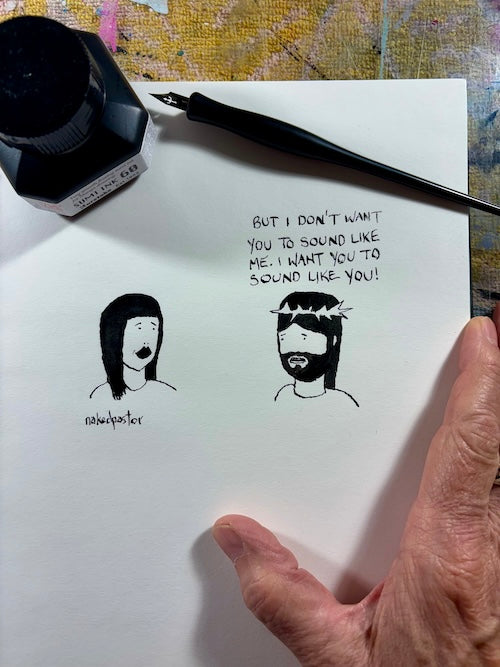 SUMI INK 60
BUT I DON'T WANT
YOU TO SOUND LIKE
ME. I WANT YOU TO
SOUND LIKE YOU!
nakedpastor